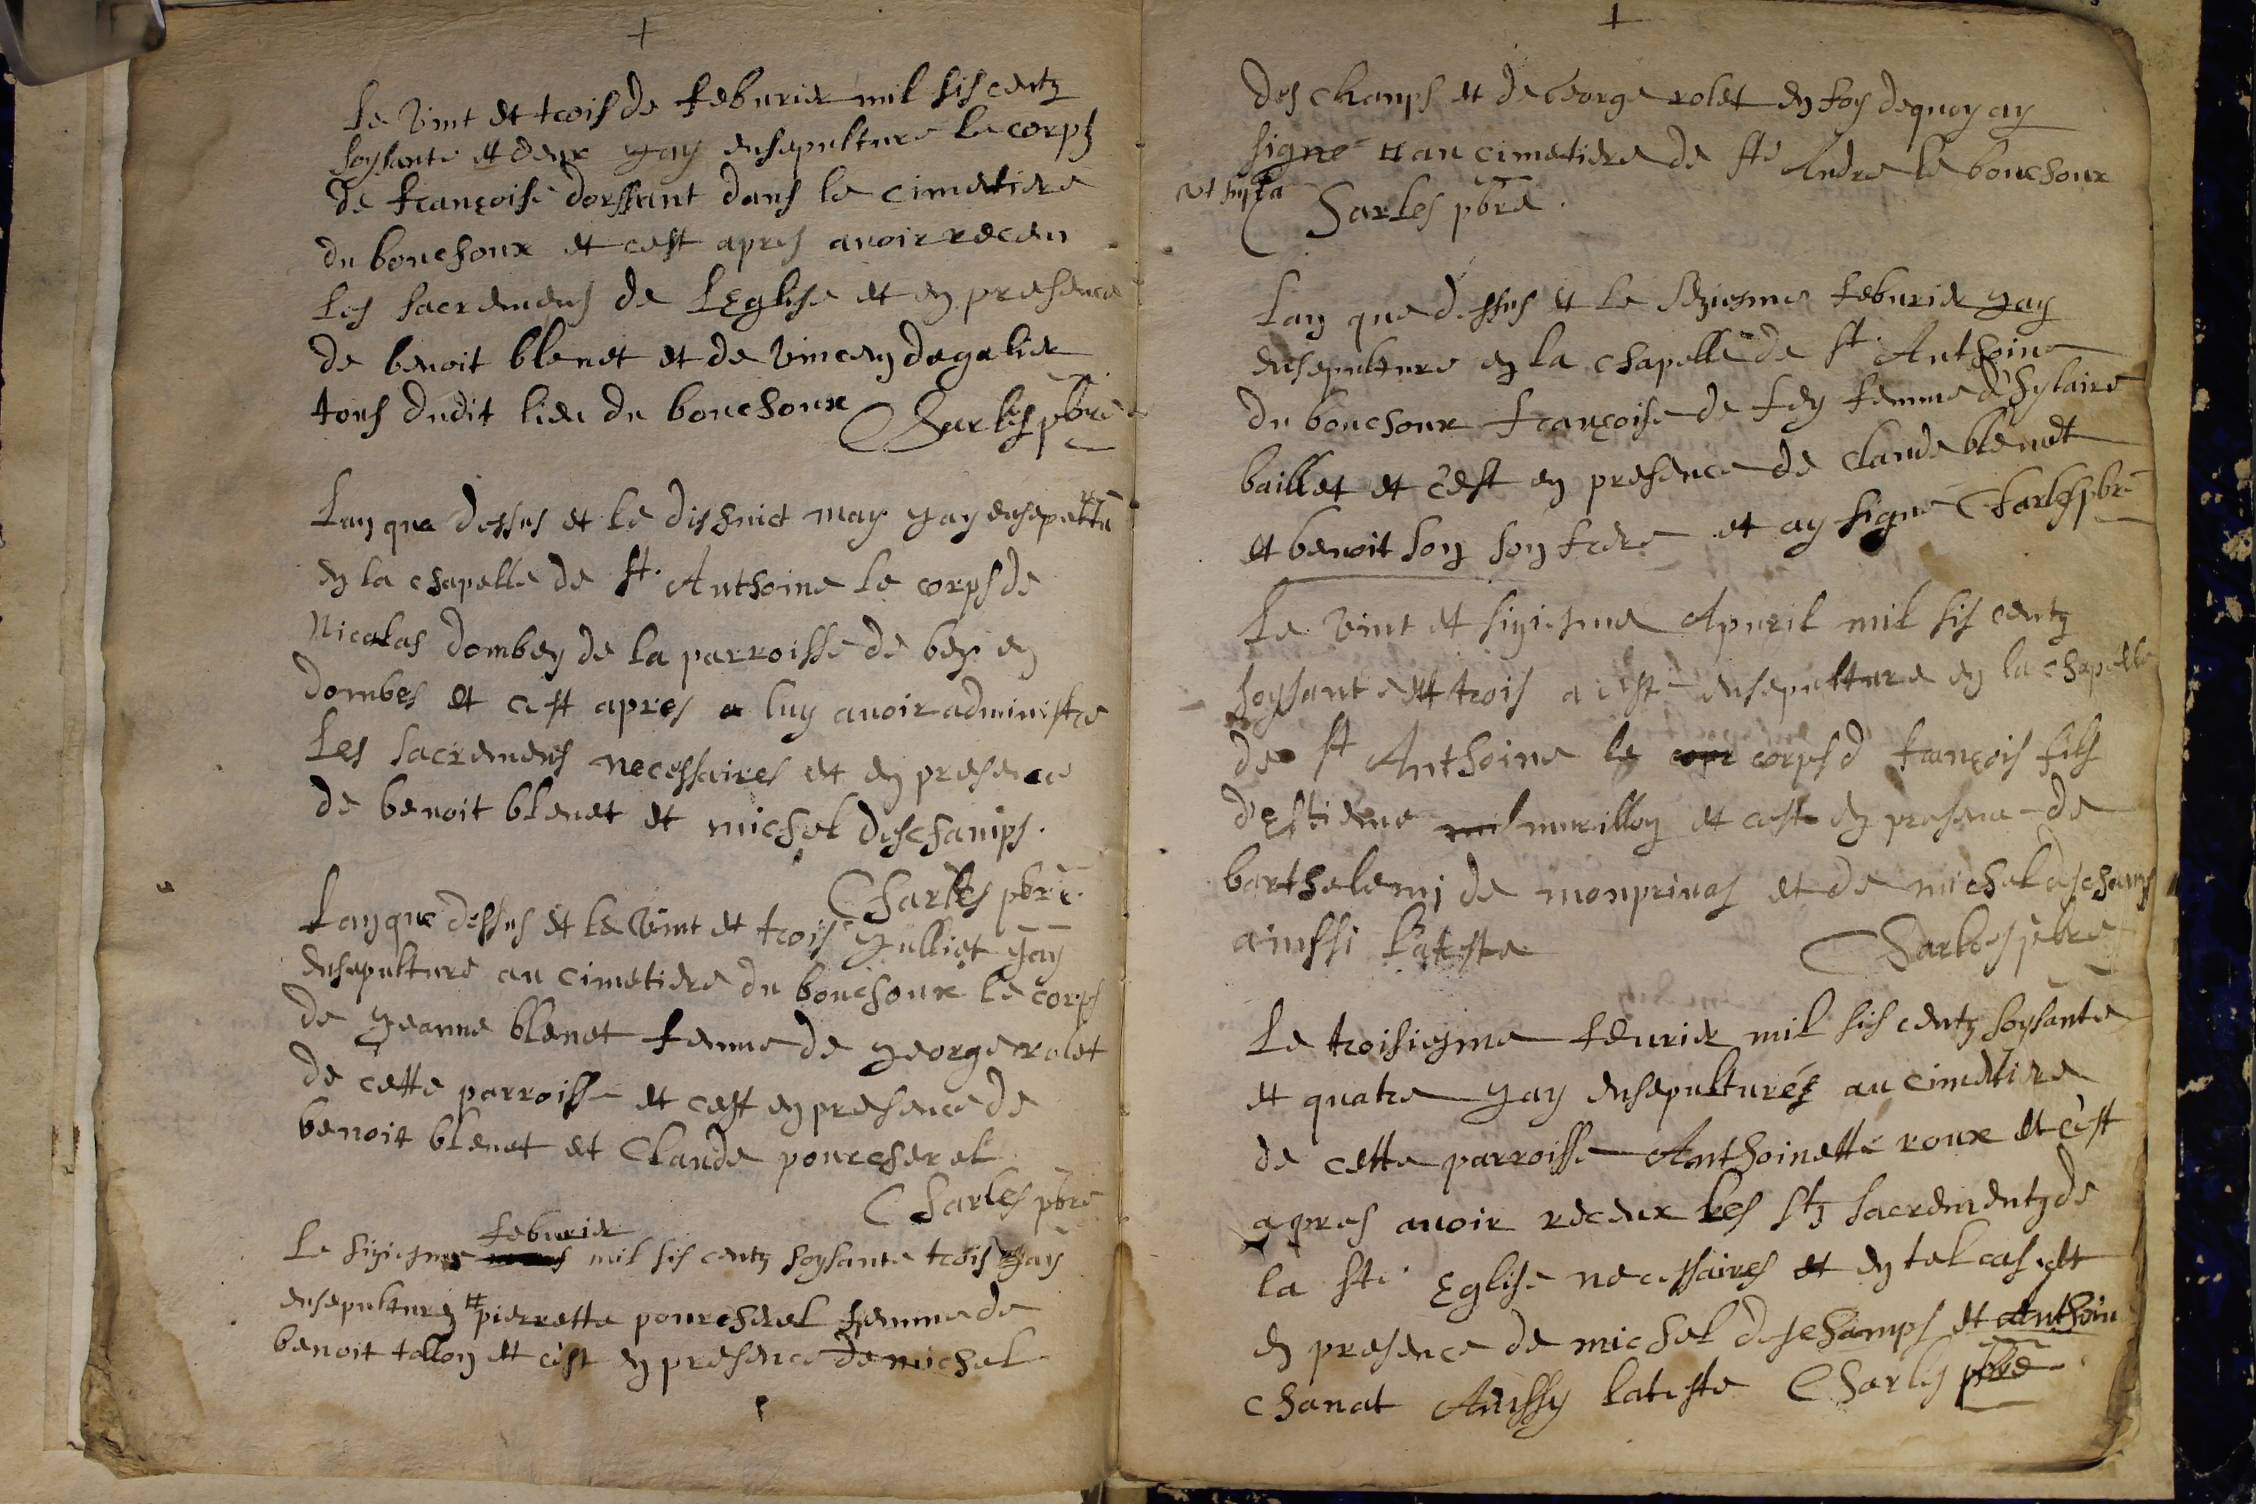 +
Le vint et trois de feburier mil sis centz
soysante et deux yay ensepulture le corps
de françoise dorssant dans le cimetiere
du bouchoux et cest apres auoir receu
les sacremens de LEglise et en presence
de benoit blenet et de vincen dagalier
tous dudit lieu du bouchoux Charles pbre
Lan que dessus et le dishuict may yay ensepultu
re
en la chapelle de st. Anthoine le corps de
Nicolas dombey de la parroisse de bey en
dombes et cest apres a luy auoir administre
Les sacremens necessaires et en presence
de benoit blenet et michel deschamps.
Charles pbre.
Lan que dessus et le vint et trois yulliet yay
ensepulture au cimetiere du bouchoux le corps
de yeanne blenet femme de george rolet
de cette parroisse et cest en presence de
benoit blenet et Claude pourcherel
Charles pbre
feburier
Le siziesme mil sis centz soysante trois yay
ensepulturez pierrette pourcherel femme de
benoit tallon et cest en presence de michel
+
des champs et de George rolet en foy dequoy ay
signé et au cimetiere de ste Andre le bouchoux
vt supra Charles pbre.
Lan que dessus et le seziesme feburier yay
ensepulture en la chapelle de st. Anthoine
du bouchoux françoise de fey femme d'hylaire
baillet et cest en presence de claude blenet
et benoit son son frere et ay signe Charles pbre
Le vint et siziesme Apuril mil sis centz
soysante et trois a esté ensepulture en la chapelle
de st Anthoine le copr corps d françois fils
d'Estienne murillon et cest en presence de
barthelemi de monprinas et de michel deschamps
ainssi l'ateste Charles pbre
Le troisiesme feurier mil sis centz soysante
et quatre yay ensepulturéz au cimetiere
de cette parroisse Anthoinette roux et c'est
apres auoir receux les stz sacrementz de
la ste. Eglise necessaires et en tel cas
en presence de michel deschamps et Anthoin
chanat Ainssy lateste Charles pbre